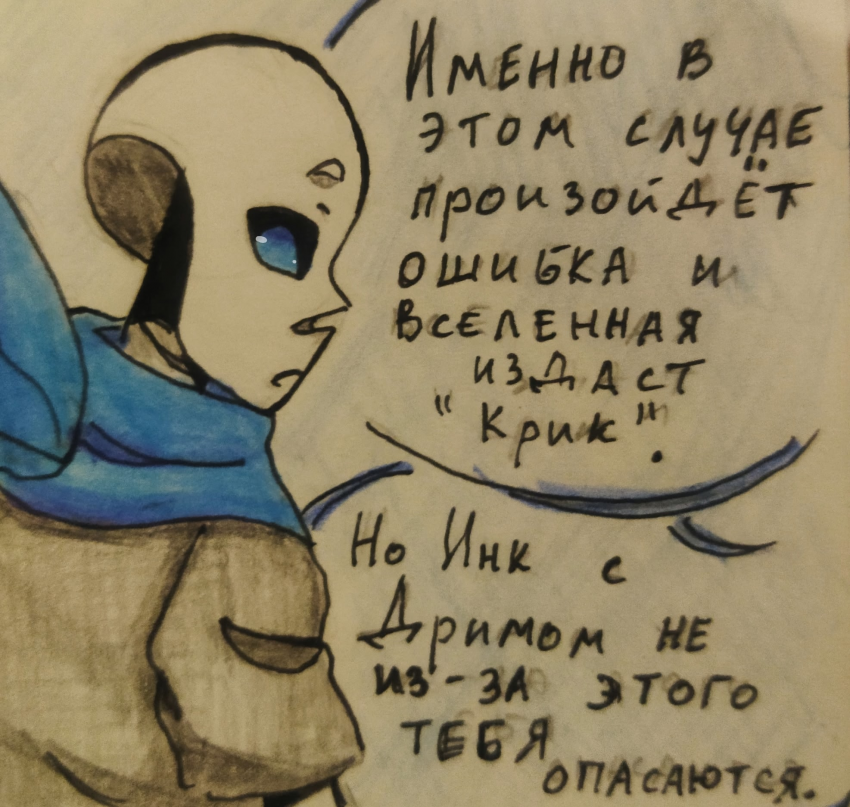 Именно в
этом случае
произойдёт
ошибка и
вселенная
издаст
"Крик".
Но Инк с
Дримом не
из-за этого
тебя
опасаются.